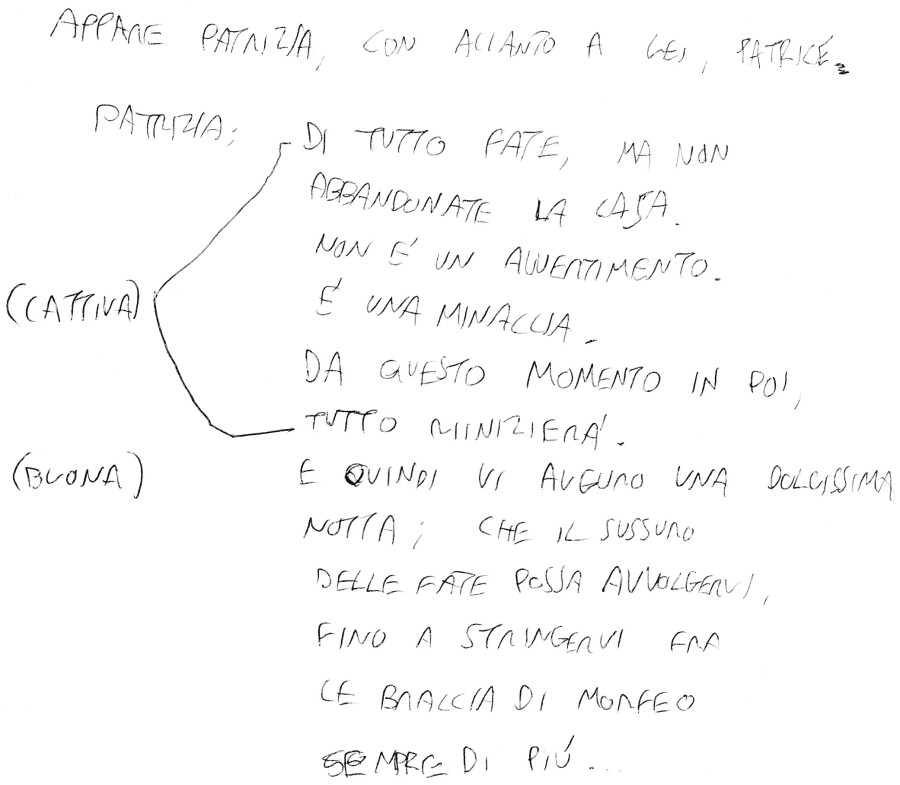 APPARE PATRIZIA, CON ACCANTO A LEI, PATRICE.
PATRIZIA: DI TUTTO FATE, MA NON
ABBANDONATE LA CASA.
NON É UN AVVERTIMENTO.
(CATTIVA) É UNA MINACCIA.
DA QUESTO MOMENTO IN POI,
TUTTO RIINIZIERÁ.
(BUONA) E QUINDI VI AUGURO UNA DOLCISSIMA
NOTTA; CHE IL SUSSURO
DELLE FATE POSSA AVVOLGERVI,
FINO A STRINGERVI FRA
LE BRACCIA DI MORFEO
SEMPRE DI PIÚ...